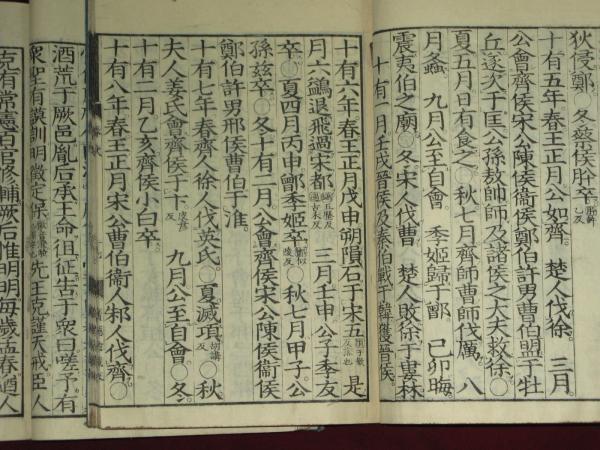 狄侵鄭○冬蔡侯肸卒
十有五年春王正月公如齊 楚人伐徐 三月
公會齊侯宋公陳侯衞侯鄭伯許男曹伯盟于牡
丘遂次于匡公孫敖帥師及諸侯之大夫救徐○
夏五月日有食之○秋七月齊師曹師伐厲 八
月螽 九月公至自會 季姬歸于鄫 己卯晦
震夷伯之廟○冬宋人伐曹 楚人敗徐于婁林
十有一月壬戌晉侯及秦伯戰于韓獲晉侯
十有六年春王正月戊申朔隕石于宋五 是
月六鷁退飛過宋都 三月壬申公子季友
卒○夏四月丙申鄫季姬卒 秋七月甲子公
孫玆卒○冬十有二月公會齊侯宋公陳侯衞侯
鄭伯許男邢侯曹伯于淮
十有七年春齊人徐人伐英氏○夏滅項○秋
夫人姜氏會齊侯于卞 九月公至自會○冬
十有二月乙亥齊侯小白卒
十有八年春王正月宋公曹伯衞人邾人伐齊○
酒荒于厥邑胤后承王命徂征告于衆曰嗟予有
衆聖有謨訓明徵定保 先王克謹天戒臣人
克有常憲百官修輔厥后惟明明每歲孟春遒人